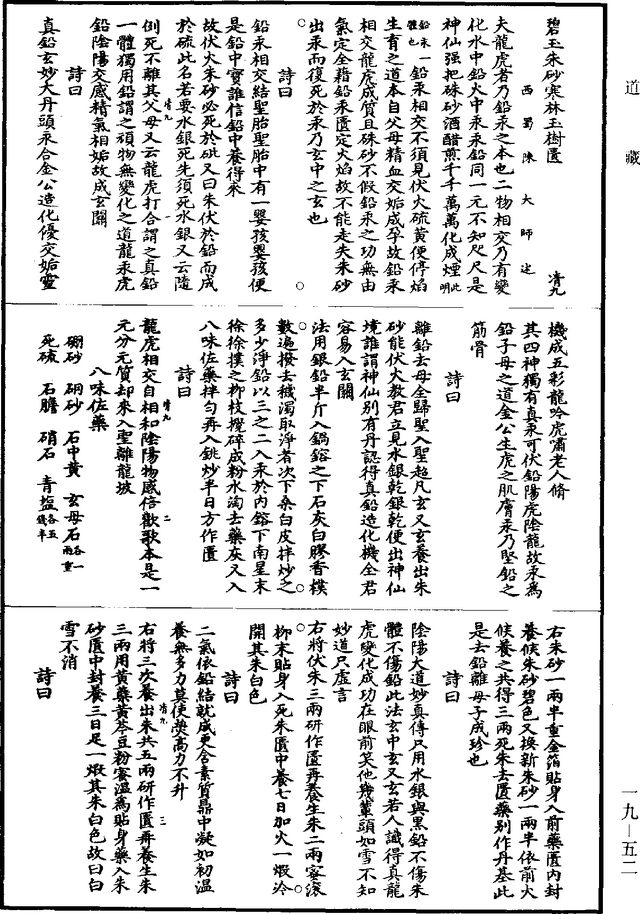 道藏
碧玉朱砂寒林玉樹匱
清九
西蜀陳大師述
夫龍虎者乃鉛汞之本也二物相交乃有變
化水中鉛火中汞汞鉛同一元不知咫尺是
神仙强把硃砂酒醋煎千千萬萬化成煙此明
鉛汞一體也鉛汞相交不須見伏火硫黃便停焰
生育之道本自父母精血交姤成孕故鉛汞
相交龍虎成質且硃砂不假鉛汞之功無由
氣定全藉鉛汞匱定火焰故不能走失朱砂
出汞而復死於汞乃玄中之玄也
詩曰
鉛汞相交結聖胎聖胎中有一嬰孩嬰孩便
是鉛中寶誰信鉛中養得來
故伏火朱砂必死於砒又曰朱伏於鉛而成
於硫此名若要水銀死先須死水銀又云隨
倒死不離其父母又云龍虎打合謂之真鉛
一體獨用鉛謂之頑物無變化之道龍汞虎
鉛陰陽交感精氣相姤故成玄關
詩曰
真鉛玄妙大丹頭汞合金公造化優交姤靈
機成五彩龍吟虎嘯老人脩
其四神獨有真汞可伏鉛陽虎陰龍故汞爲
鉛子母之道金公生虎之肌膚汞乃堅鉛之
筋骨
詩曰
離鉛去母全歸聖入聖超凡玄又玄養出朱
砂能伏火教君立見水銀乾銀乾便出神仙
境誰謂神仙别有丹認得真鉛造化機全君
容易入玄關
法用銀鉛半斤入鍋鎔之下石灰白膠香樸
數遍撥去穢濁取淨者次下桑白皮拌炒之
多少淨鉛以三之二入汞於内鎔下南星末
徐徐撲之柳枝攪碎成粉水淘去藥灰又入
八味佐藥拌勻再入銚炒半日方作匱
詩曰
龍虎相交自相和陰陽物感倍歡歌本是一
元分元質却來入聖離龍坡
八味佐藥
硼砂 硇砂 石中黃 玄母石各一兩重
死硫 石膽 硝石 青塩各五錢半
右朱砂一兩半重金箔貼身入前藥匱内封
養候朱砂碧色又換新朱砂一兩半依前火
候養之共得三兩死朱去匱藥别作丹基此
是去鉛離母子成珍也
詩曰
陰陽大道妙真傳只用水銀與黑鉛不傷朱
體不傷鉛此法玄中玄又玄若人識得真龍
虎變化成功在眼前笑他幾輩頭如雪不知
妙道只虛言
右將伏朱三兩研作匱再養生朱二兩蜜滚
柳末貼身入死朱匱中養七日加火一煅冷
開其朱白色
詩曰
二氣依鉛結就咸更含素質鼎中凝如初温
養無多力莫使爕高力不升
右將三次養出朱共五兩研作匱再養生朱
三兩用黃藥黃芩豆粉蜜温爲貼身藥入朱
砂匱中封養三日足一煅其朱白色故曰白
雪不消
詩曰
一九－五二